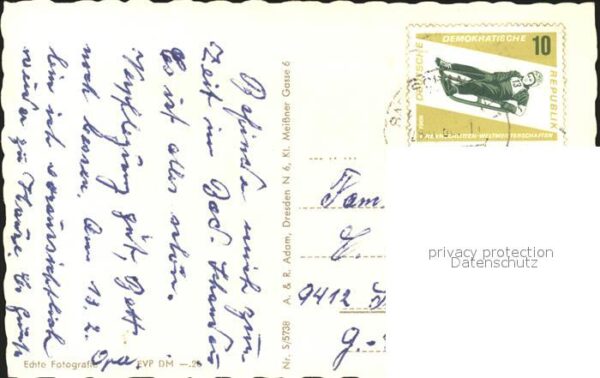 Befinde mich zur
Zeit in Bad. Schandau
Es ist alles schön.
Verpflegung gut, Bett
noch besser. Am 13.2.
bin ich voraussichtlich
wieder zu Hause. Es grüßt
Opa.
Echte Fotografie EVP DM —.20
Nr. S/5738 A. & R. Adam, Dresden N 6, Kl. Meißner Gasse 6
DEUTSCHE DEMOKRATISCHE REPUBLIK
10
13
RENNSCHLITTEN-WELTMEISTERSCHAFTEN
Fam.
9412
privacy protection
Datenschutz